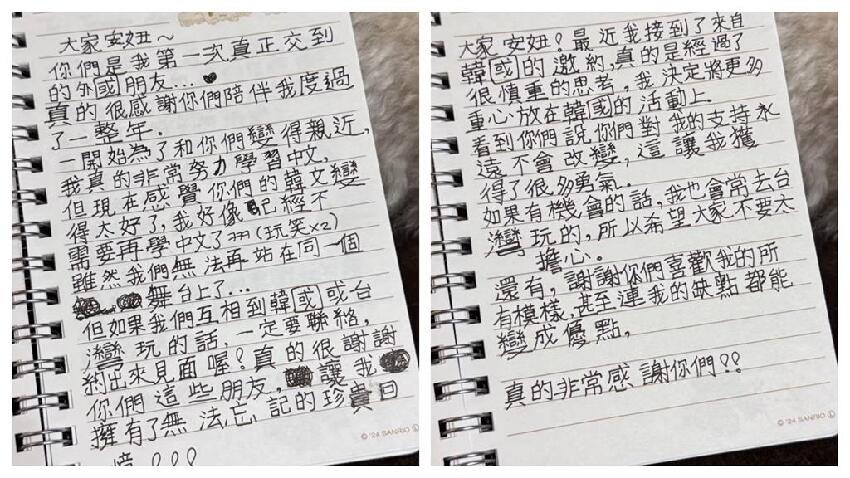 大家安妞~
你們是我第一次真正交到
的外國朋友...
真的很感謝你們陪伴我度過
了一整年.
一開始為了和你們變得親近,
我真的非常努力學習中文,
但現在感覺你們的韓文變
得太好了,我好像已經不
需要再學中文了ㅋㅋ(玩笑x2)
雖然我們無法再站在同一個
舞台上了...
但如果我們互相到韓國或台
灣玩的話,一定要聯絡,
約出來見面喔!真的很謝謝
你們這些朋友,讓我
擁有了無法忘記的珍貴回
憶!!!
© '24 SANRIO
大家安妞!最近我接到了來自
韓國的邀約,真的是經過了
很慎重的思考,我決定將更多
重心放在韓國的活動上
看到你們說,你們對我的支持永
遠不會改變,這讓我獲
得了很多勇氣..
如果有機會的話,我也會常去台
灣玩的,所以希望大家不要太
擔心。
還有,謝謝你們喜歡我的所
有模樣,甚至連我的缺點都能
變成優點,
真的非常感謝你們!!
© '24 SANRIO